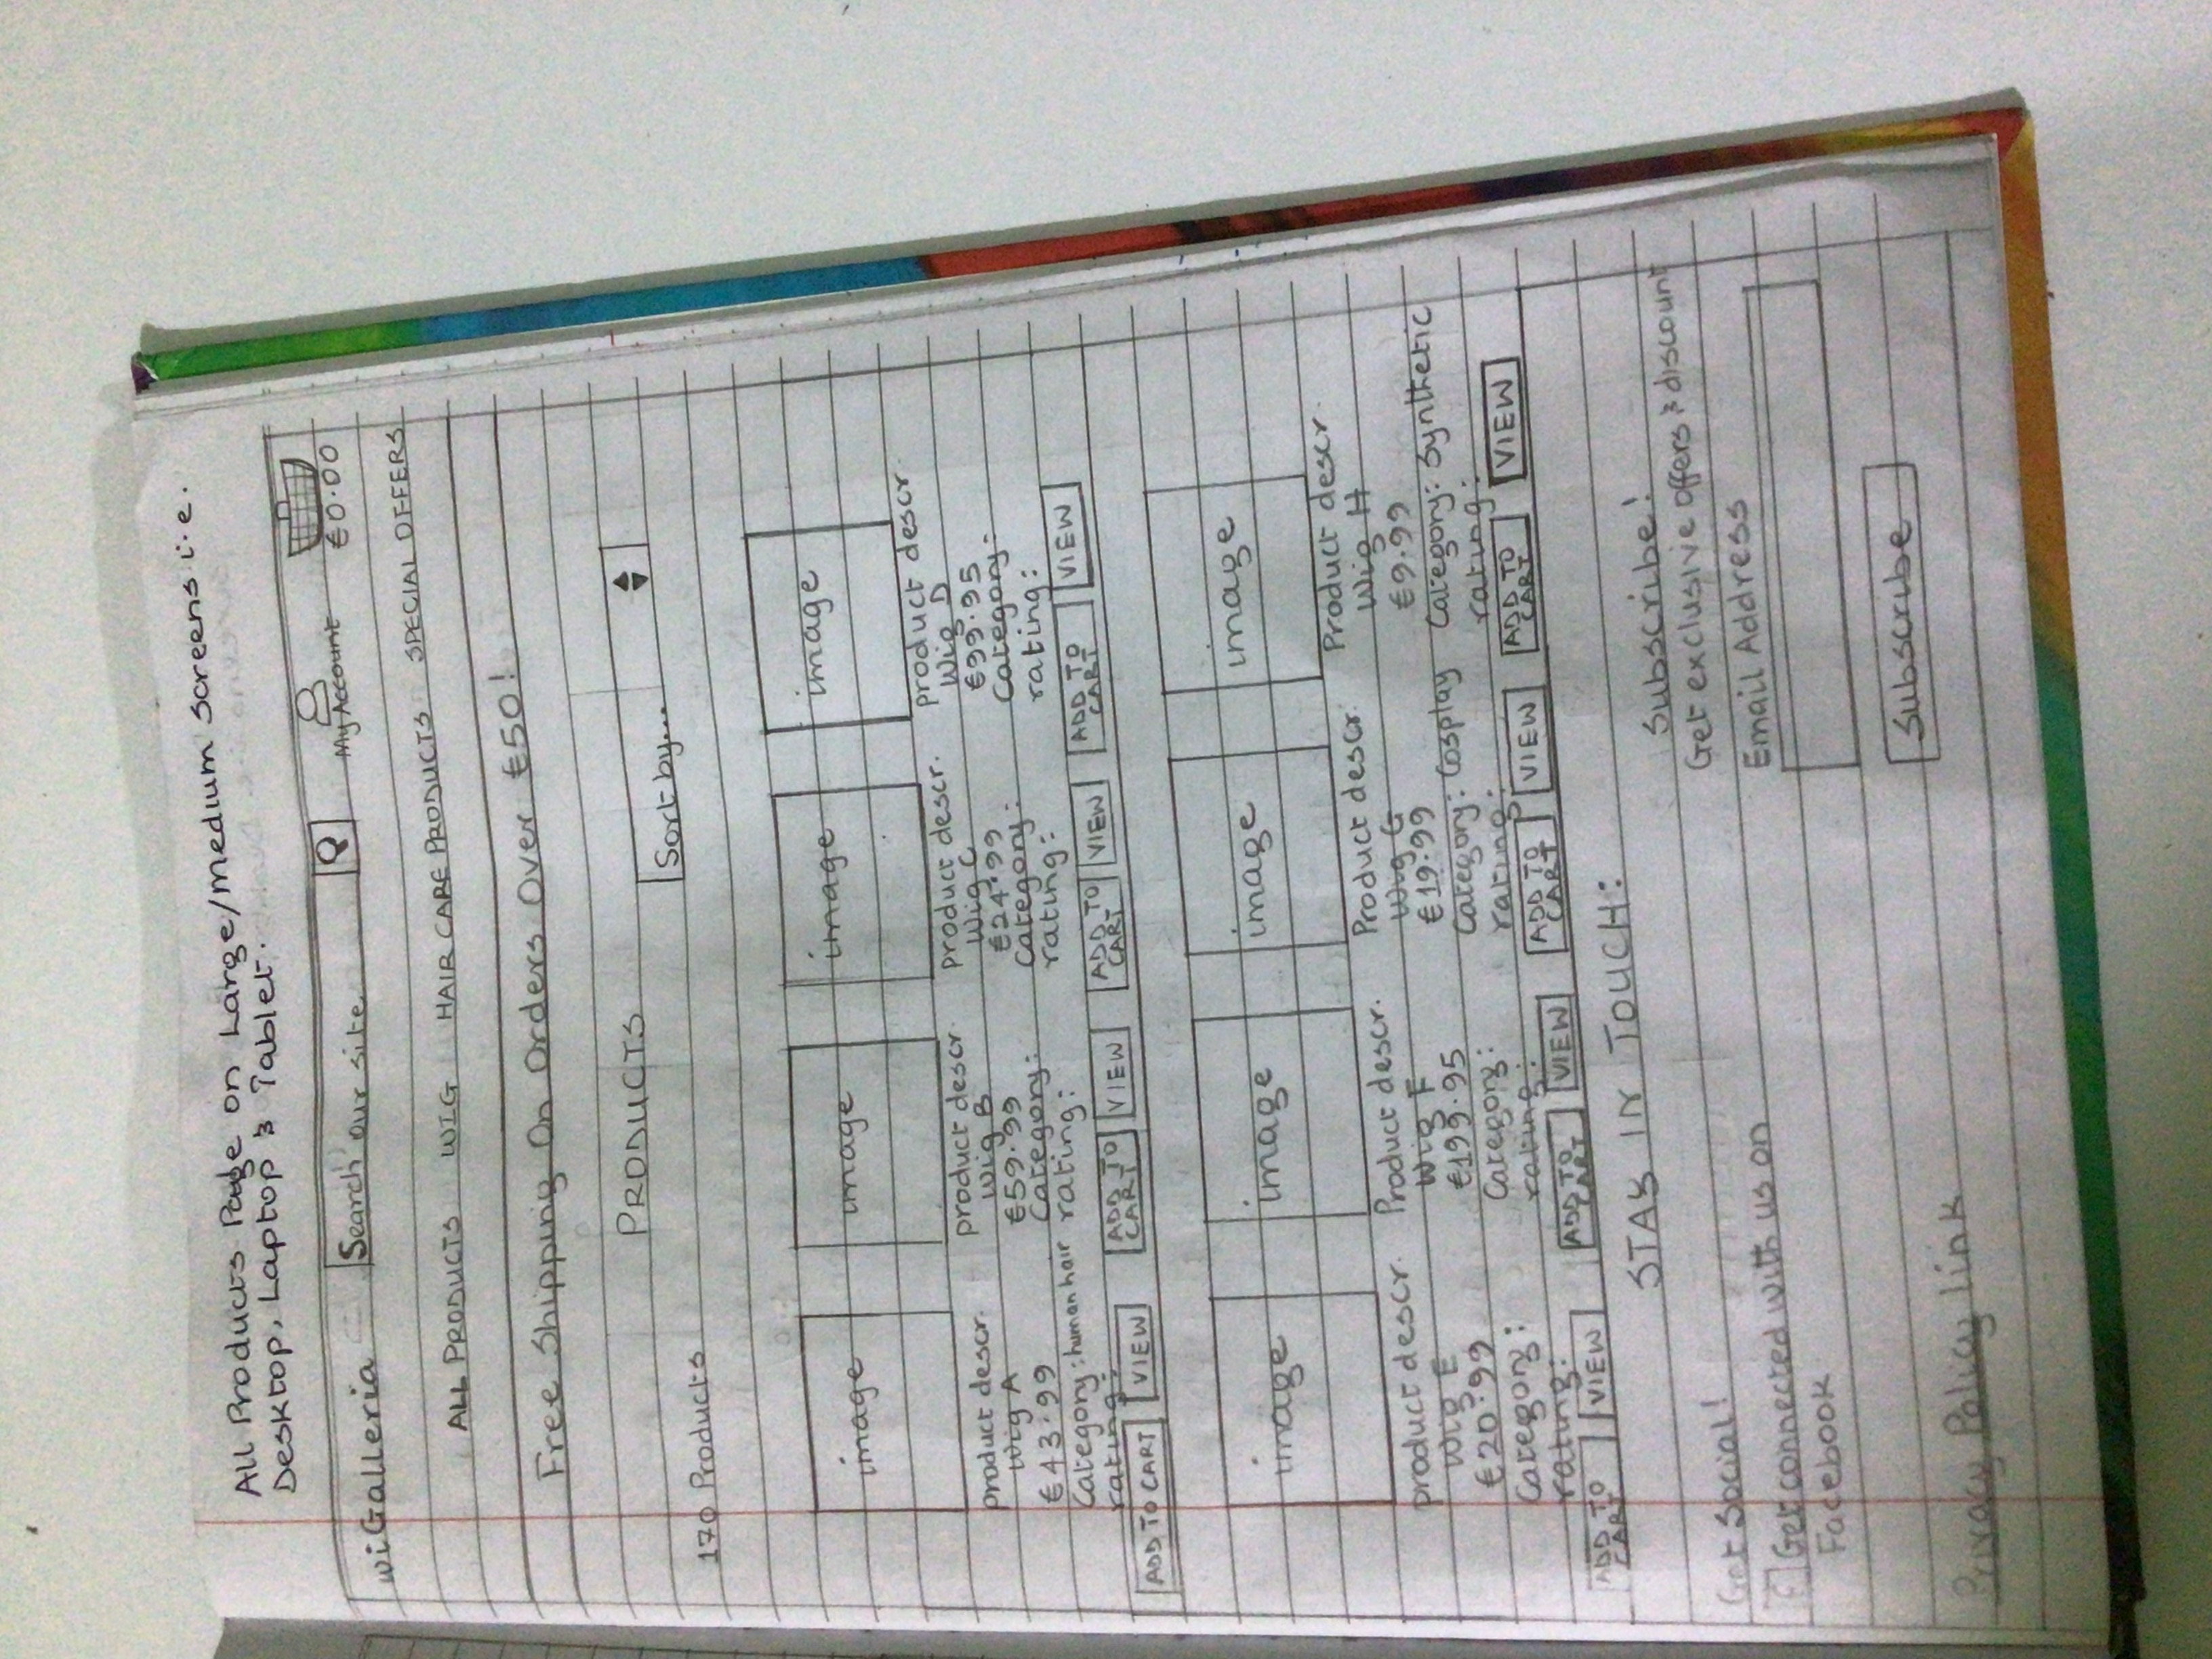 All Products Page on Large/medium Screens i.e.
Desktop, Laptop & Tablet.
wiGalleria Search our site My Account €0.00
ALL PRODUCTS WIG HAIR CARE PRODUCTS SPECIAL OFFERS
Free Shipping On Orders Over €50!
PRODUCTS
170 Products Sort by...
image image image image
product descr. product descr. product descr. product descr.
Wig A Wig B Wig C Wig D
€43.99 €59.99 €24.99 €99.95
Category: human hair Category: Category: Category:
rating: rating: rating: rating:
ADD TO CART VIEW ADD TO CART VIEW ADD TO CART VIEW ADD TO CART VIEW
image image image image
product descr. Product descr. Product descr. Product descr.
Wig E Wig F Wig G Wig H
€20.99 €199.95 €19.99 €9.99
Category: Category: Category: Cosplay Category: Synthetic
rating: rating: rating: rating:
ADD TO CART VIEW ADD TO CART VIEW ADD TO CART VIEW ADD TO CART VIEW
STAY IN TOUCH:
Get Social! Subscribe!
f Get connected with us on Get exclusive offers & discount
Facebook Email Address
Subscribe
Privacy Policy link